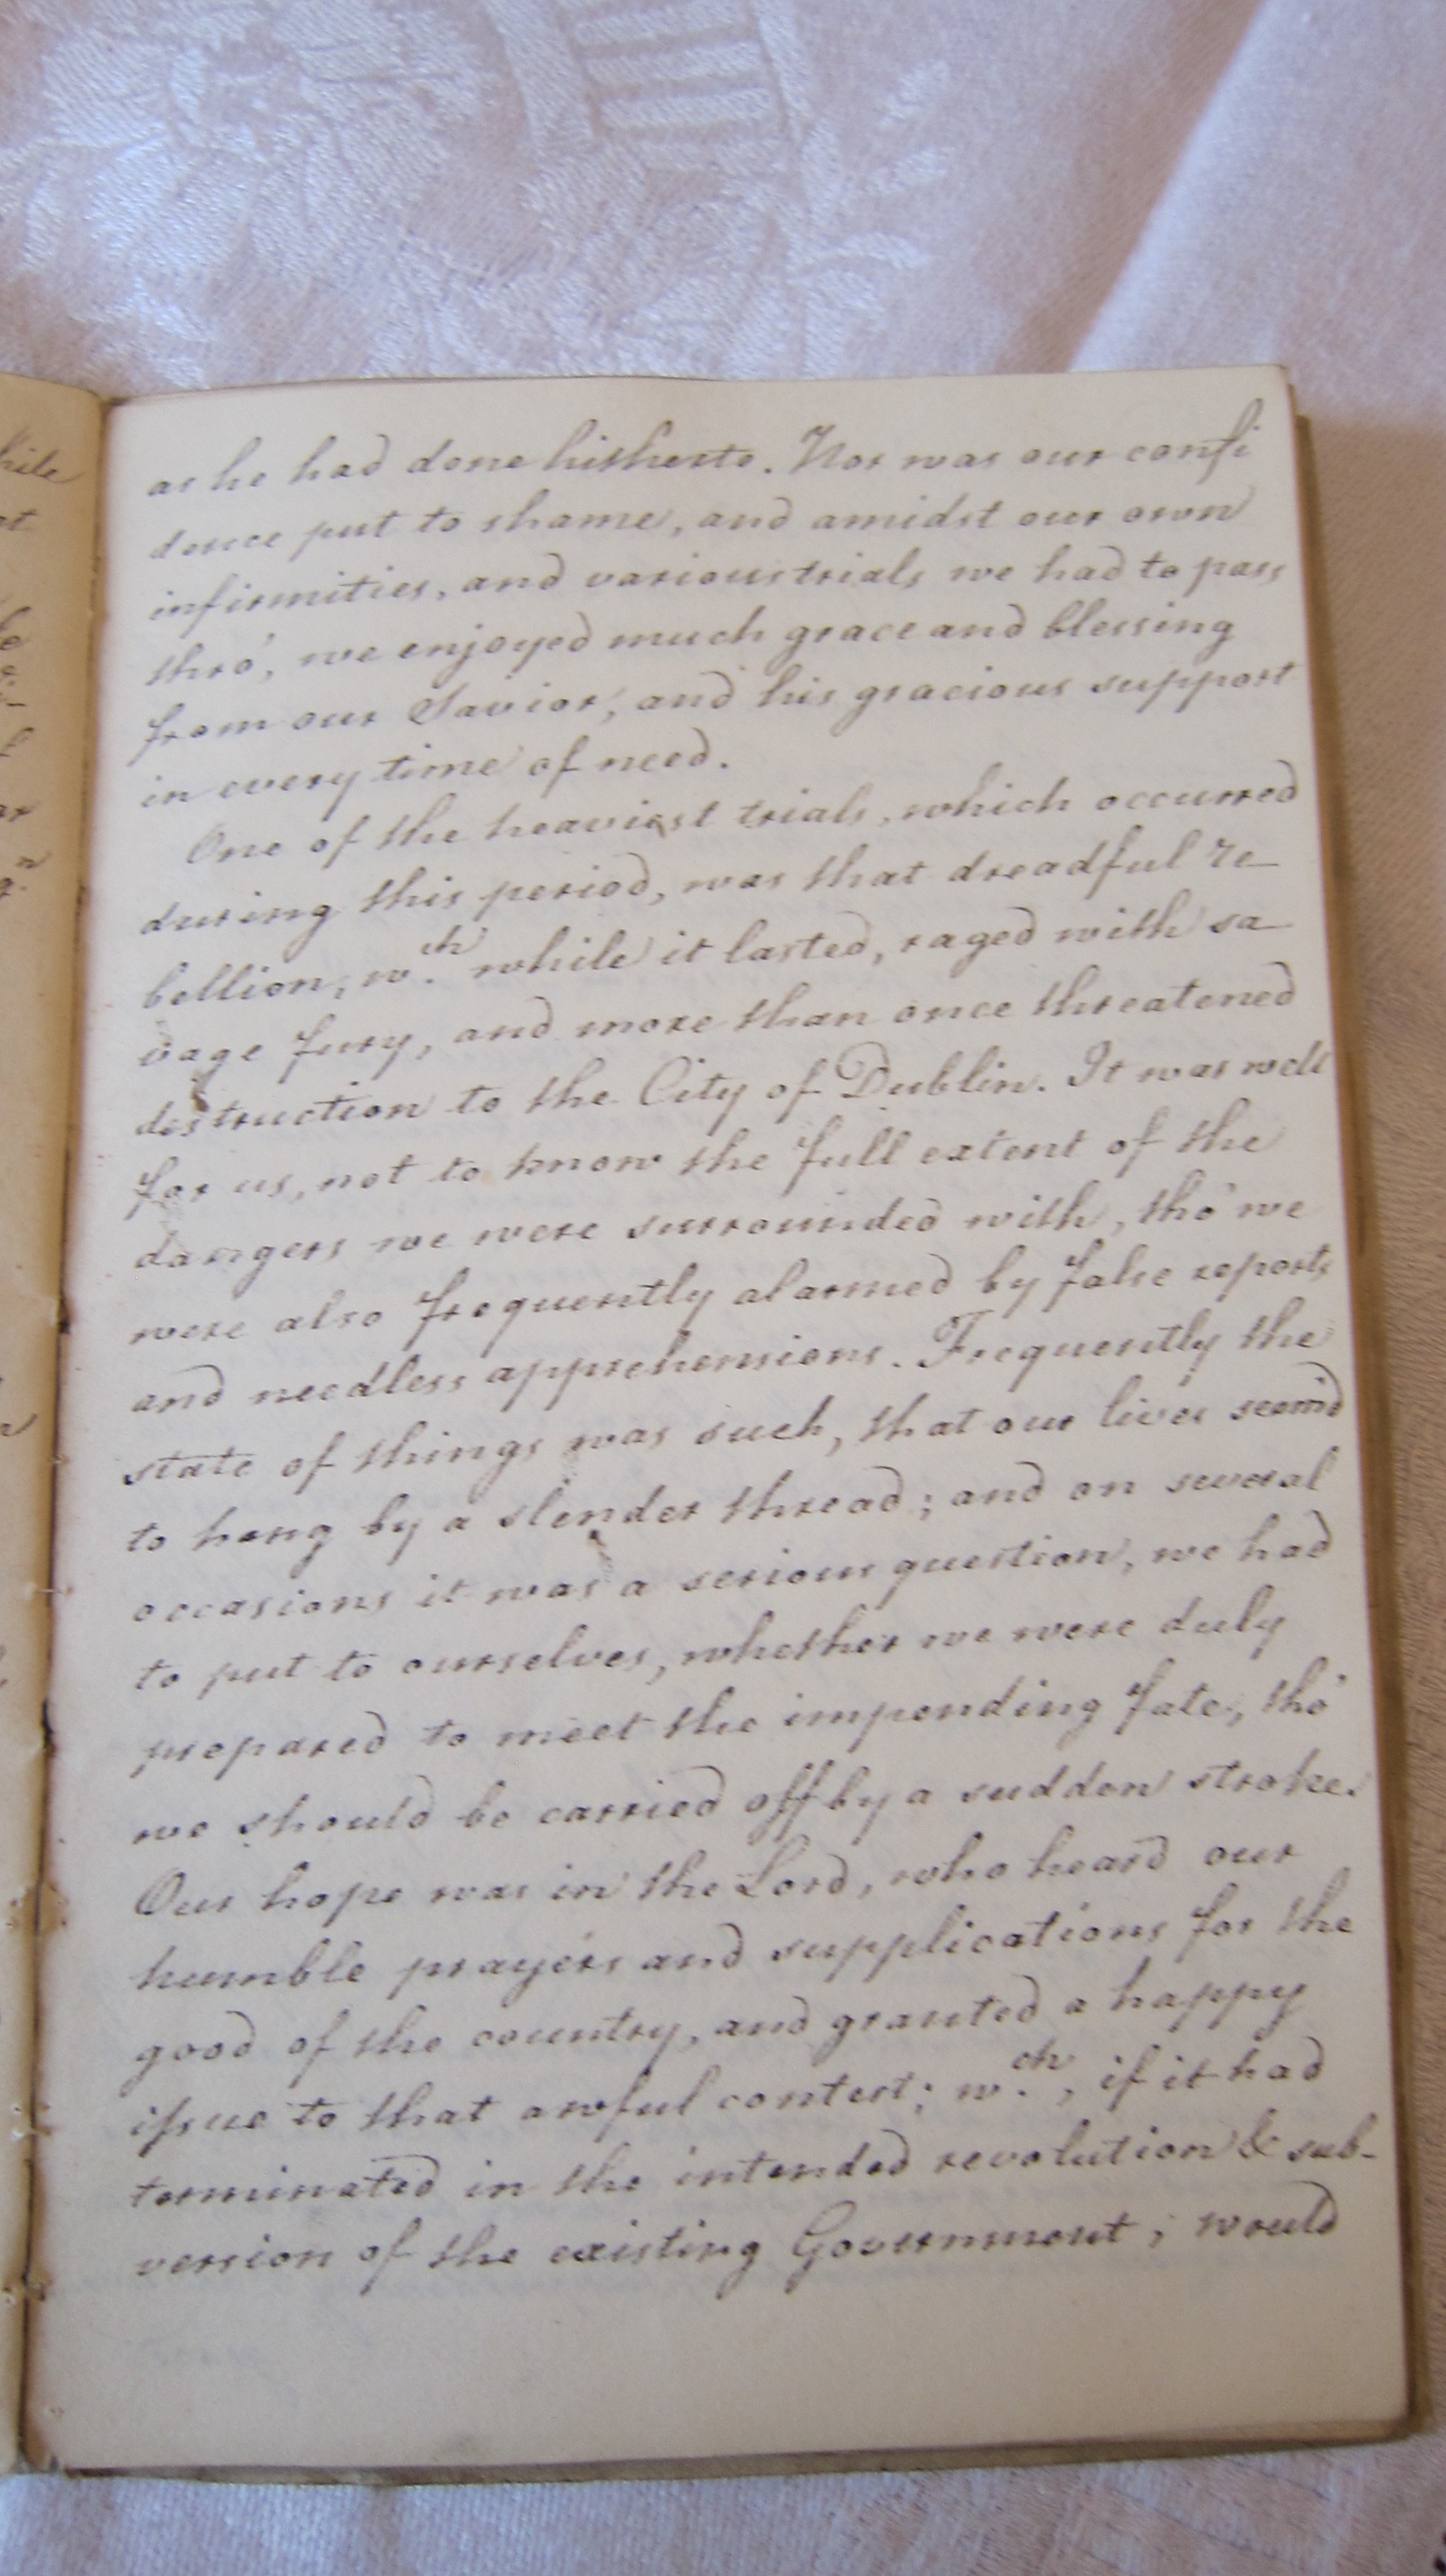 as he had done hitherto. Nor was our confi
dence put to shame, and amidst our own
infirmities, and various trials we had to pass
thro', we enjoyed much grace and blessing
from our Savior, and his gracious support
in every time of need.
One of the heaviest trials, which occurred
during this period, was that dreadful re-
bellion, w.ch while it lasted, raged with sa-
vage fury, and more than once threatened
destruction to the City of Dublin. It was well
for us, not to know the full extent of the
dangers we were surrounded with, tho' we
were also frequently alarmed by false reports
and needless apprehensions. Frequently the
state of things was such, that our lives seem'd
to hang by a slender thread; and on several
occasions it was a serious question, we had
to put to ourselves, whether we were duly
prepared to meet the impending fate, tho'
we should be carried off by a sudden stroke.
Our hope was in the Lord, who heard our
humble prayers and supplications for the
good of the country, and granted a happy
issue to that awful contest; w.ch, if it had
terminated in the intended revolution & sub-
version of the existing Government, would